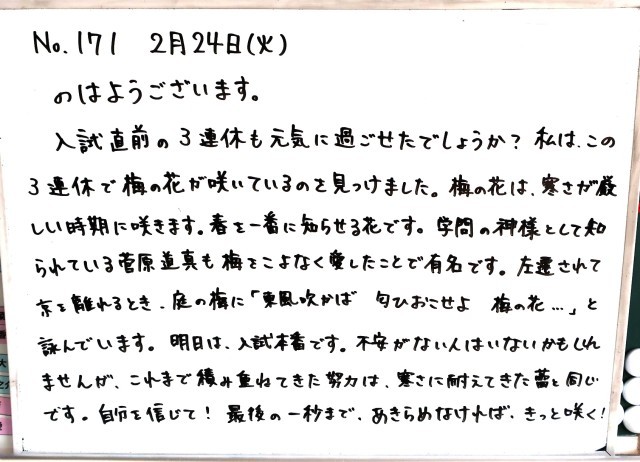 No.171 2月24日(火)
のはようございます。
入試直前の3連休も元気に過ごせたでしょうか？私は、この
3連休で梅の花が咲いているのを見つけました。梅の花は、寒さが厳
しい時期に咲きます。春を一番に知らせる花です。学問の神様として知
られている菅原道真も梅をこよなく愛したことで有名です。左遷されて
京を離れるとき、庭の梅に「東風吹かば 匂ひおこせよ 梅の花…」と
詠んでいます。明日は、入試本番です。不安がない人はいないかもしれ
ませんが、これまで積み重ねてきた努力は、寒さに耐えてきた蕾と同じ
です。自分を信じて！最後の一秒まで、あきらめなければ、きっと咲く！